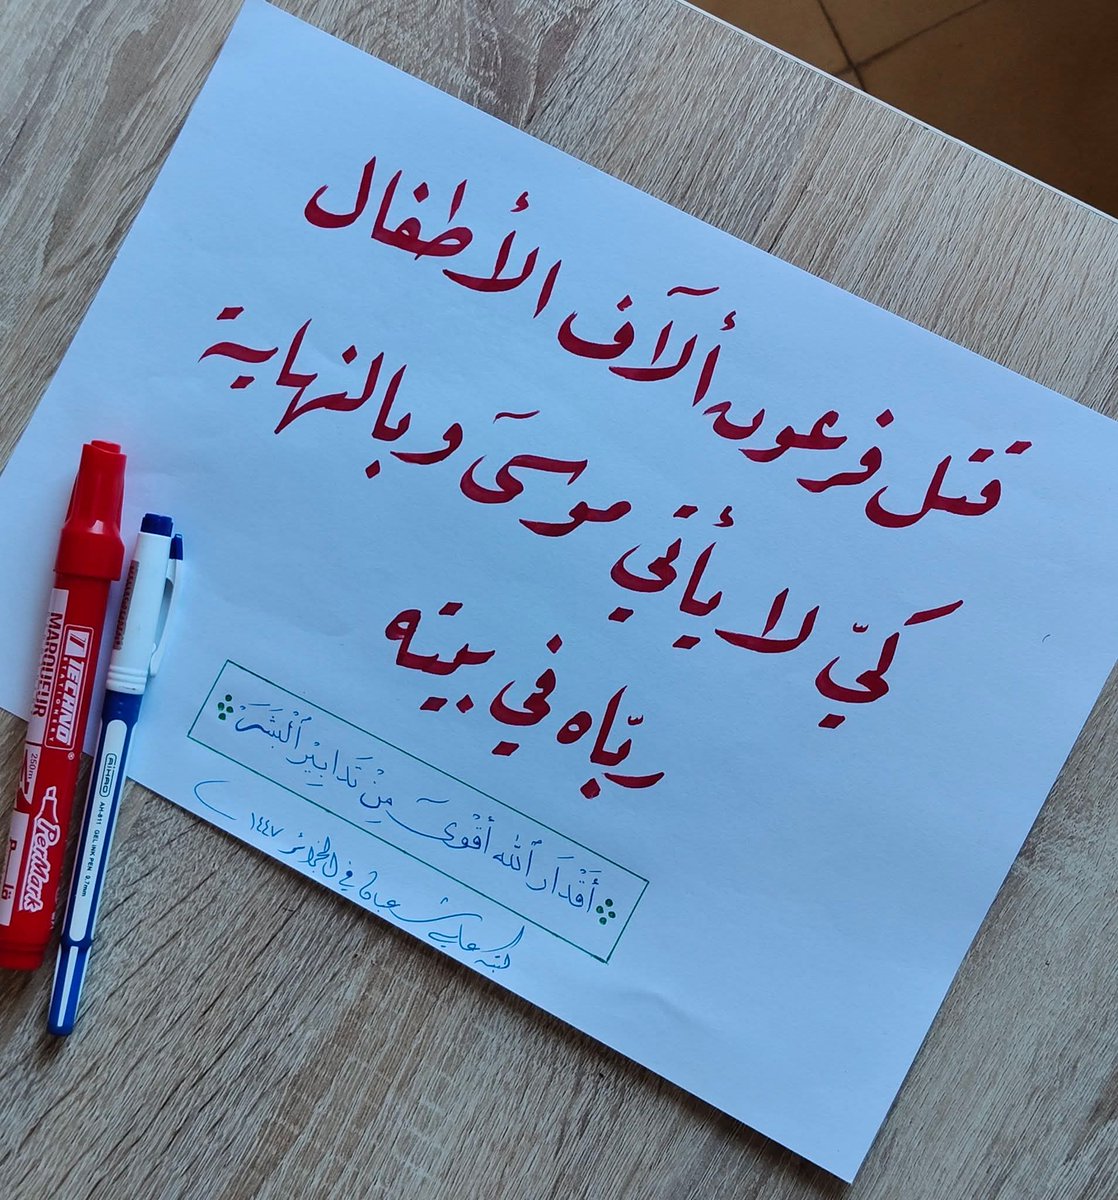 قتل فرعون ألآف الأطفال
كيّ لا يأتي موسىَ وبالنهاية
ربّاه في بيته
أَقْدَارَ ٱللّه أقْوىَ مِنْ تَدابِيْرِ ٱلْبَشَرَ
كتبه علي عباة في الجزائر ١٤٤٧
TECHNO
MARQUEUR
250m
RedMark
AIHAO
AH-811 GEL INK PEN 0.7mm